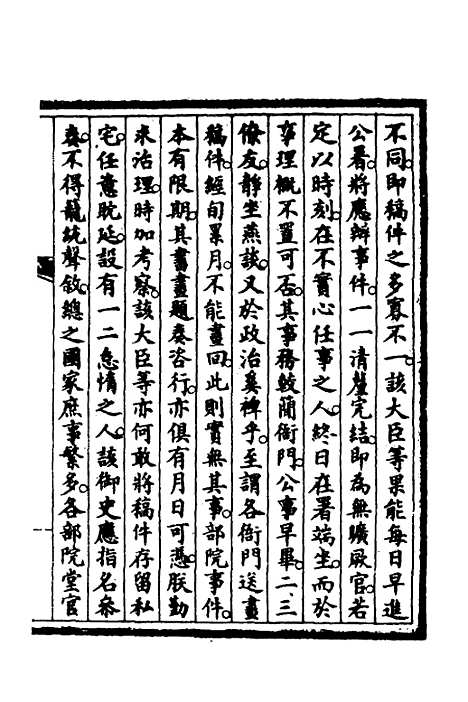 不同。即稿件之多寡不一。該大臣等果能每日早進
公署。將應辦事件。一一清釐完結。即為無曠厥官。若
定以時刻。在不實心任事之人。終日在署端坐。而於
事理概不置可否。其事務較簡衙門。公事早畢。二、三
僚友。靜坐燕談。又於政治奚裨乎。至謂各衙門送畫
稿件。經旬累月。不能畫回。此則實無其事。部院事件。
本有限期。其書畫題奏咨行。亦俱有月日可憑。朕勤
求治理。時加考察。該大臣等亦何敢將稿件存留私
宅。任意耽延。設有一二怠惰之人。該御史應指名參
奏。不得籠統聲敘。總之國家庶事繁多。各部院堂官